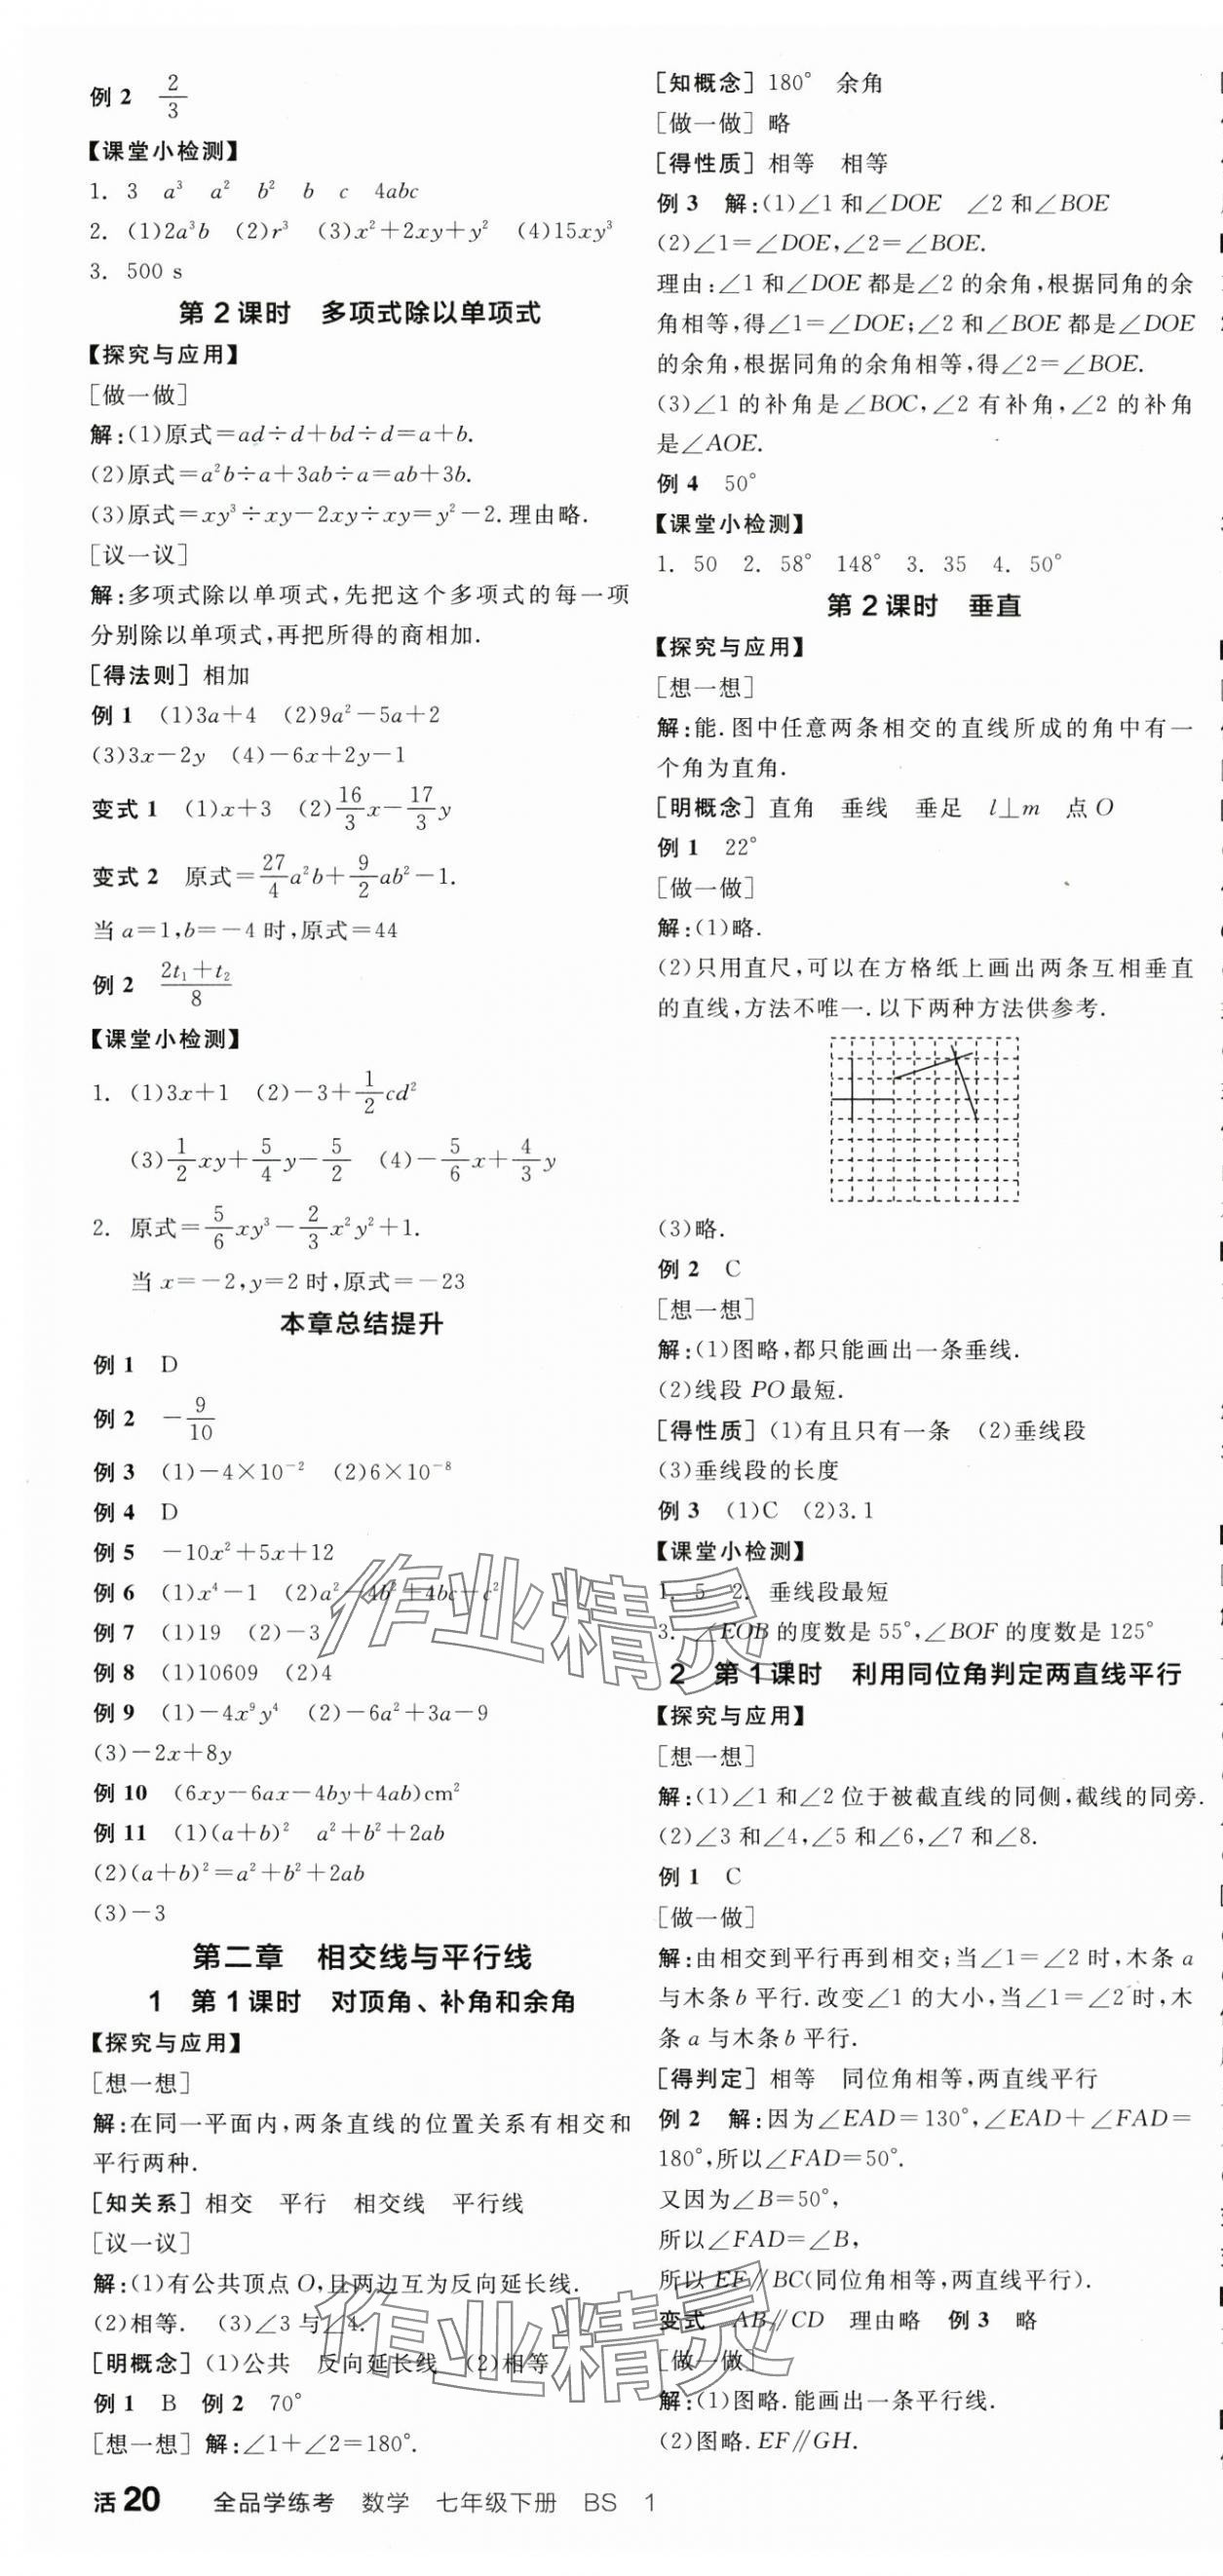 例 2 2/3
【课堂小检测】
1. 3 a³ a² b² b c 4abc
2. (1)2a³b (2)r³ (3)x²+2xy+y² (4)15xy³
3. 500 s
第 2 课时 多项式除以单项式
【探究与应用】
[做一做]
解:(1)原式=ad÷d+bd÷d=a+b.
(2)原式=a²b÷a+3ab÷a=ab+3b.
(3)原式=xy³÷xy-2xy÷xy=y²-2.理由略.
[议一议]
解:多项式除以单项式,先把这个多项式的每一项
分别除以单项式,再把所得的商相加.
[得法则] 相加
例 1 (1)3a+4 (2)9a²-5a+2
(3)3x-2y (4)-6x+2y-1
变式 1 (1)x+3 (2)16/3x-17/3y
变式 2 原式=27/4a²b+9/2ab²-1.
当 a=1,b=-4 时,原式=44
例 2 (2t₁+t₂)/8
【课堂小检测】
1. (1)3x+1 (2)-3+1/2cd²
(3)1/2xy+5/4y-5/2 (4)-5/6x+4/3y
2. 原式=5/6xy³-2/3x²y²+1.
当 x=-2,y=2 时,原式=-23
本章总结提升
例 1 D
例 2 -9/10
例 3 (1)-4×10⁻² (2)6×10⁻⁸
例 4 D
例 5 -10x²+5x+12
例 6 (1)x⁴-1 (2)a²-4b²+4bc-c²
例 7 (1)19 (2)-3
例 8 (1)10609 (2)4
例 9 (1)-4x⁹y⁴ (2)-6a²+3a-9
(3)-2x+8y
例 10 (6xy-6ax-4by+4ab)cm²
例 11 (1)(a+b)² a²+b²+2ab
(2)(a+b)²=a²+b²+2ab
(3)-3
第二章 相交线与平行线
1 第 1 课时 对顶角、补角和余角
【探究与应用】
[想一想]
解:在同一平面内,两条直线的位置关系有相交和
平行两种.
[知关系] 相交 平行 相交线 平行线
[议一议]
解:(1)有公共顶点 O,且两边互为反向延长线.
(2)相等. (3)∠3 与∠4.
[明概念] (1)公共 反向延长线 (2)相等
例 1 B 例 2 70°
[想一想] 解:∠1+∠2=180°.
[知概念] 180° 余角
[做一做] 略
[得性质] 相等 相等
例 3 解:(1)∠1 和∠DOE ∠2 和∠BOE
(2)∠1=∠DOE,∠2=∠BOE.
理由:∠1 和∠DOE 都是∠2 的余角,根据同角的余
角相等,得∠1=∠DOE;∠2 和∠BOE 都是∠DOE
的余角,根据同角的余角相等,得∠2=∠BOE.
(3)∠1 的补角是∠BOC,∠2 有补角,∠2 的补角
是∠AOE.
例 4 50°
【课堂小检测】
1. 50 2. 58° 148° 3. 35 4. 50°
第 2 课时 垂直
【探究与应用】
[想一想]
解:能.图中任意两条相交的直线所成的角中有一
个角为直角.
[明概念] 直角 垂线 垂足 l⊥m 点 O
例 1 22°
[做一做]
解:(1)略.
(2)只用直尺,可以在方格纸上画出两条互相垂直
的直线,方法不唯一.以下两种方法供参考.
(3)略.
例 2 C
[想一想]
解:(1)图略,都只能画出一条垂线.
(2)线段 PO 最短.
[得性质] (1)有且只有一条 (2)垂线段
(3)垂线段的长度
例 3 (1)C (2)3.1
【课堂小检测】
1. 5 2. 垂线段最短
3. ∠EOB 的度数是 55°,∠BOF 的度数是 125°
2 第 1 课时 利用同位角判定两直线平行
【探究与应用】
[想一想]
解:(1)∠1 和∠2 位于被截直线的同侧,截线的同旁.
(2)∠3 和∠4,∠5 和∠6,∠7 和∠8.
例 1 C
[做一做]
解:由相交到平行再到相交;当∠1=∠2 时,木条 a
与木条 b 平行.改变∠1 的大小,当∠1=∠2 时,木
条 a 与木条 b 平行.
[得判定] 相等 同位角相等,两直线平行
例 2 解:因为∠EAD=130°,∠EAD+∠FAD=
180°,所以∠FAD=50°.
又因为∠B=50°,
所以∠FAD=∠B,
所以 EF∥BC(同位角相等,两直线平行).
变式 AB∥CD 理由略 例 3 略
[做一做]
解:(1)图略.能画出一条平行线.
(2)图略.EF∥GH.
作业精灵
作业精灵
活 20 全品学练考 数学 七年级下册 BS 1